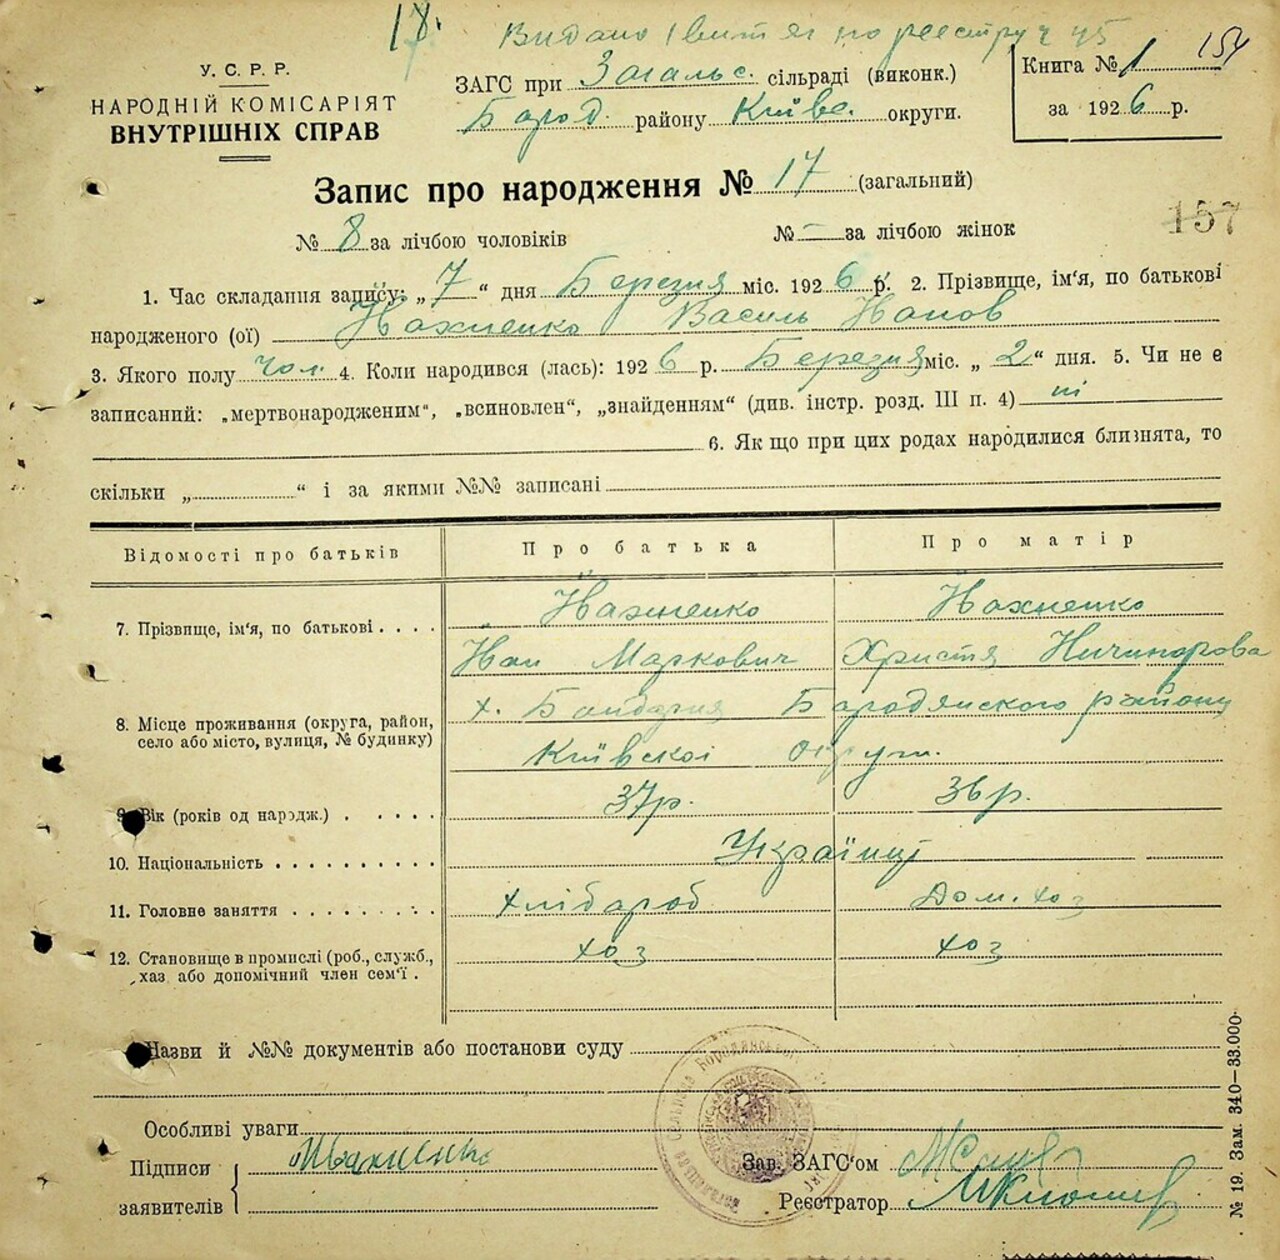 18.
Видано
154
У. С. Р. Р.
НАРОДНІЙ КОМІСАРІЯТ
ВНУТРІШНІХ СПРАВ
ЗАГС при Загальс. сільраді (виконк.)
Бород. району Київс. округи.
Книга № 1
за 1926 р.
Запис про народження № 17 (загальний)
157
№ 8 за лічбою чоловіків № — за лічбою жінок
1. Час складання запису: „7“ дня Березня міс. 1926 р. 2. Прізвище, ім'я, по батькові
народженого (ої) Василь Иванов
3. Якого полу чол. 4. Коли народився (лась): 1926 р. Березня міс. „2“ дня. 5. Чи не є
записаний: „мертвонародженим“, „всиновлен“, „знайденням“ (див. інстр. розд. III п. 4) ні
6. Як що при цих родах народилися близнята, то
скільки „ “ і за якими №№ записані
Відомості про батьків Про батька Про матір
7. Прізвище, ім'я, по батькові
Иван Маркович Христя
8. Місце проживання (округа, район,
село або місто, вулиця, № будинку)
х. Бондарня Бородянского району
Київскої округи.
9. Вік (років од народж.) 37р. 36р.
10. Національність Українці
11. Головне заняття хлібороб Дом. хоз
12. Становище в промислі (роб., служб.,
хаз або допомічний член сем'ї. хоз хоз
Назви й №№ документів або постанови суду
Особливі уваги
Підписи
заявителів
Зав. ЗАГС'ом
Реєстратор
№ 19. Зам. 340—33.000